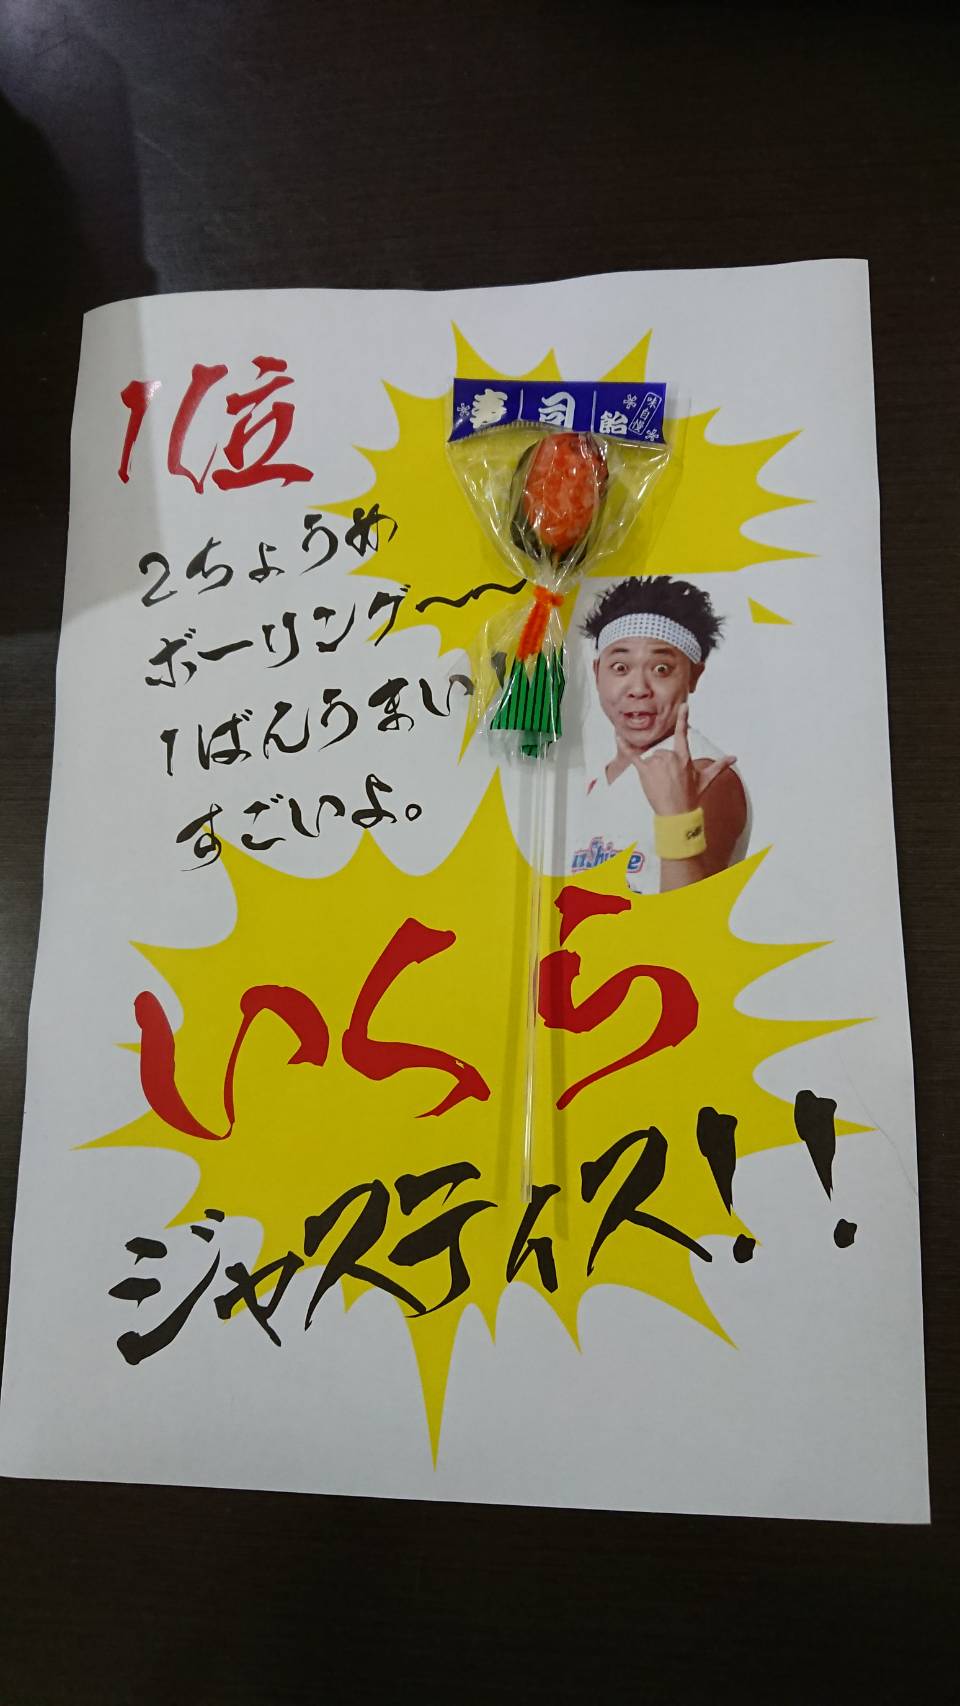 1位
寿司飴
味自慢
2ちょうめ
ボーリング〜〜
1ばんうまい
すごいよ。
unshine
いくら
ジャスティス!!